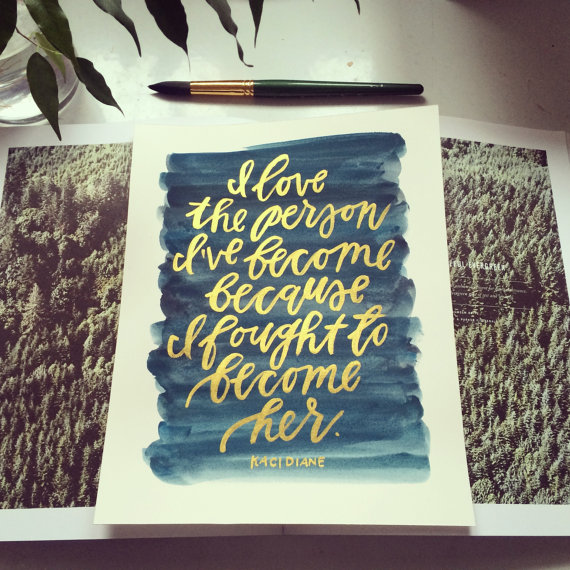 I love
the person
I've become
because
I fought to
become
her.
KACI DIANE